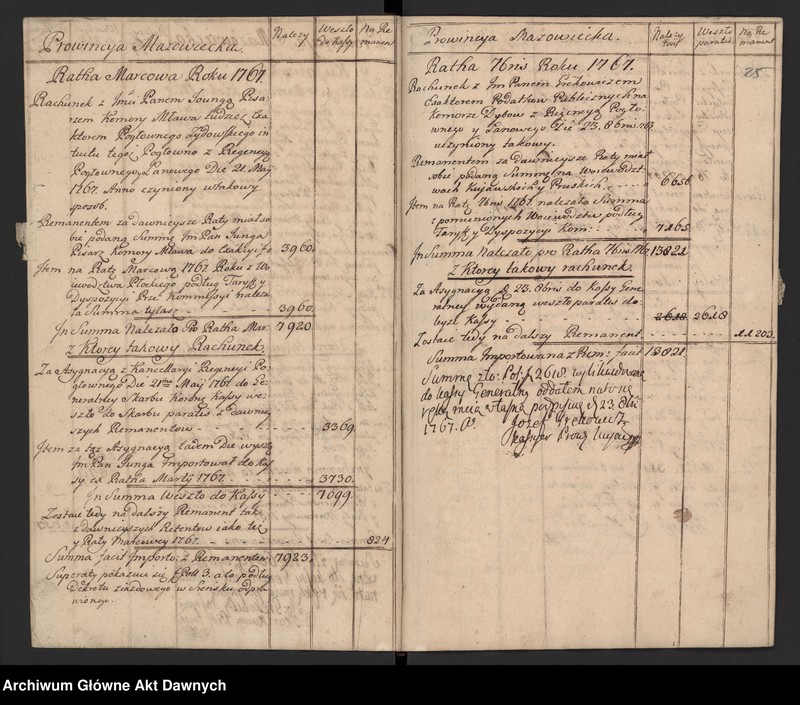 Prowincya Mazowiecka.
Należy
Weszło
do kassy
Na Re
manent
Ratha Marcowa Roku 1767.
Rachunek z Imci Panem Joungą Pisa
rzem Komory Mława tudzież Exa
ktorem Pogłownego żydowskiego in
tuitu tegoż Pogłowno z Regencyą
Pogłownego y Łanowego Die 21. Maij
1767. Anno czyniony w takowy
sposob.
Remanentem za dawnieysze Raty miał so
bie podaną Summę Im Pan Junga
Pisarz Komory Mława do Exakcyi zł 3960.
Item na Ratę Marcową 1767. Roku z Wo
iewodztwa Płockiego podług Taryff y
Dyspozycyi Prz: Kommissyi należa
ła Summa tylaż 3960.
In Summa Należało Pro Ratha Mar. 7920
z Ktorey takowy Rachunek.
Za Asygnacyą z Kancellaryi Regencyi Po
głownego Die 21ma Maij 1767. do Ge
neralney Skarbu Koronne Kassy we
szło do Skarbu paratis z dawniey
szych Remanentow 3369.
Item za tąż Asygnacyą eadem Die wyszą
Im Pan Junga Importował do Kas
sy ex Ratha Martij 1767. 3730.
In Summa Weszło do Kassy 7099.
Zostaie tedy na dalszy Remanent tak
z dawnieyszych Retentow iako też
y Raty Marcowey 1767. 824
Summa facit Importo: z Remanentem 7923.
Superaty pokazuie się f Poll 3. a to podług
Dekretu ziazdowego w Srensku odpra
wionego.
Prowincya Mazowiecka.
Należy
tość
Weszło
paratis
Na Re
manent
25
Ratha 7bris Roku 1767.
Rachunek z Im Panem Grekowiczem
Exaktorem Podatkow Publicznych na
Komorze Dybow z Regencyą Pogło
wnego y Łanowego Die 23. 8bris 1767
uczyniony takowy.
Remanentem za dawnieysze Raty miał
sobie podaną Summę na Woiewodzt
wach Kujawskich y Pruskich 6656.
Item na Ratę 7bris 1767. należała Summa
z pomienionych Woiewodztw podług
Taryff y Dyspozycyi Kom: 7165
In Summa Należało pro Ratha 7bris 1767. 13821
z Ktorey takowy rachunek.
Za Asygnacyą d. 23. 8bris do Kassy Gene
ralney wydaną weszło paratis do
tyże Kassy 2618 2618
Zostaie tedy na dalszy Remanent 11203.
Summa Importowana z Rem: facit 13821
Summę zło: Pol: f 2618 wylikwidowaną
do kassy Generalney oddałem na to się
ręką moią własną podpisuię d 23. 8bris
1767. Ao
Jozef Grekowicz
Archiwum Główne Akt Dawnych